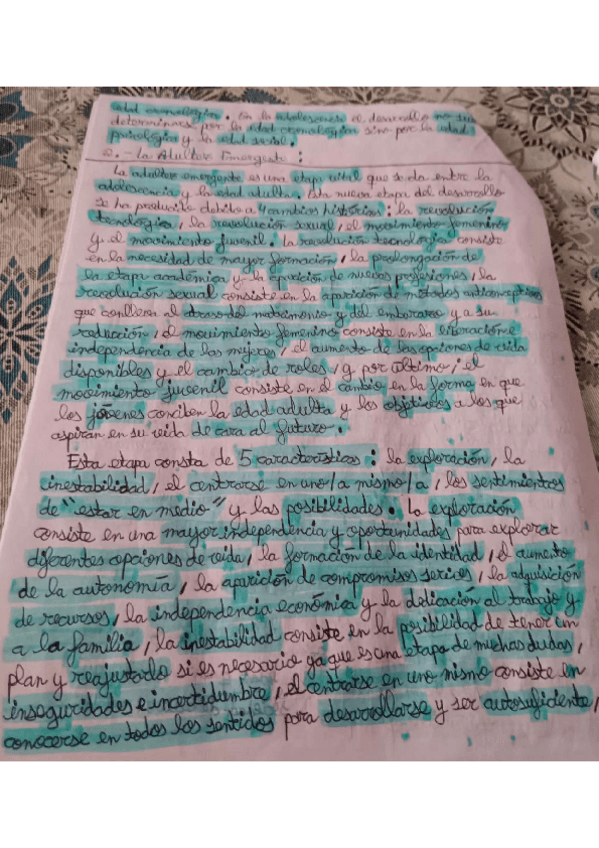 edad cronológica. En la adolescencia el desarrollo no su
determinaes por la edad cronológica sino por la edad
psicológica y la edad social.
2.- La Adultez Emergente:
La adultez emergente es una etapa vital que se da entre la
adolescencia y la edad adulta. Esta nueva etapa del desarrollo
se ha producido debido a 4 cambios históricos: la revolución
tecnológica, la revolución sexual, el movimiento femenino
y el movimiento juvenil. La revolución tecnológica consiste
en la necesidad de mayor formación, la prolongación de
la etapa académica y la aparición de nuevas profesiones, la
revolución sexual consiste en la aparición de métodos anticonceptivos
que conllevan al atraso del matrimonio y del embarazo y a su
reducción, el movimiento femenino consiste en la liberación e
independencia de las mujeres, el aumento de las opciones de vida
disponibles y el cambio de roles, y por último, el
movimiento juvenil consiste en el cambio en la forma en que
los jóvenes conciben la edad adulta y los objetivos a los que
aspiran en su vida de cara al futuro.
Esta etapa consta de 5 características: la exploración, la
inestabilidad, el centrarse en uno/a mismo/a, los sentimientos
de "estar en medio" y las posibilidades. La exploración
consiste en una mayor independencia y oportunidades para explorar
diferentes opciones de vida, la formación de la identidad, el aumento
de la autonomía, la aparición de compromisos serios, la adquisición
de recursos, la independencia económica y la dedicación al trabajo y
a la familia, la inestabilidad consiste en la posibilidad de tener un
plan y reajustarlo si es necesario ya que es una etapa de muchas dudas,
inseguridades e incertidumbre, el centrarse en uno mismo consiste en
conocerse en todos los sentidos para desarrollarse y ser autosuficiente,